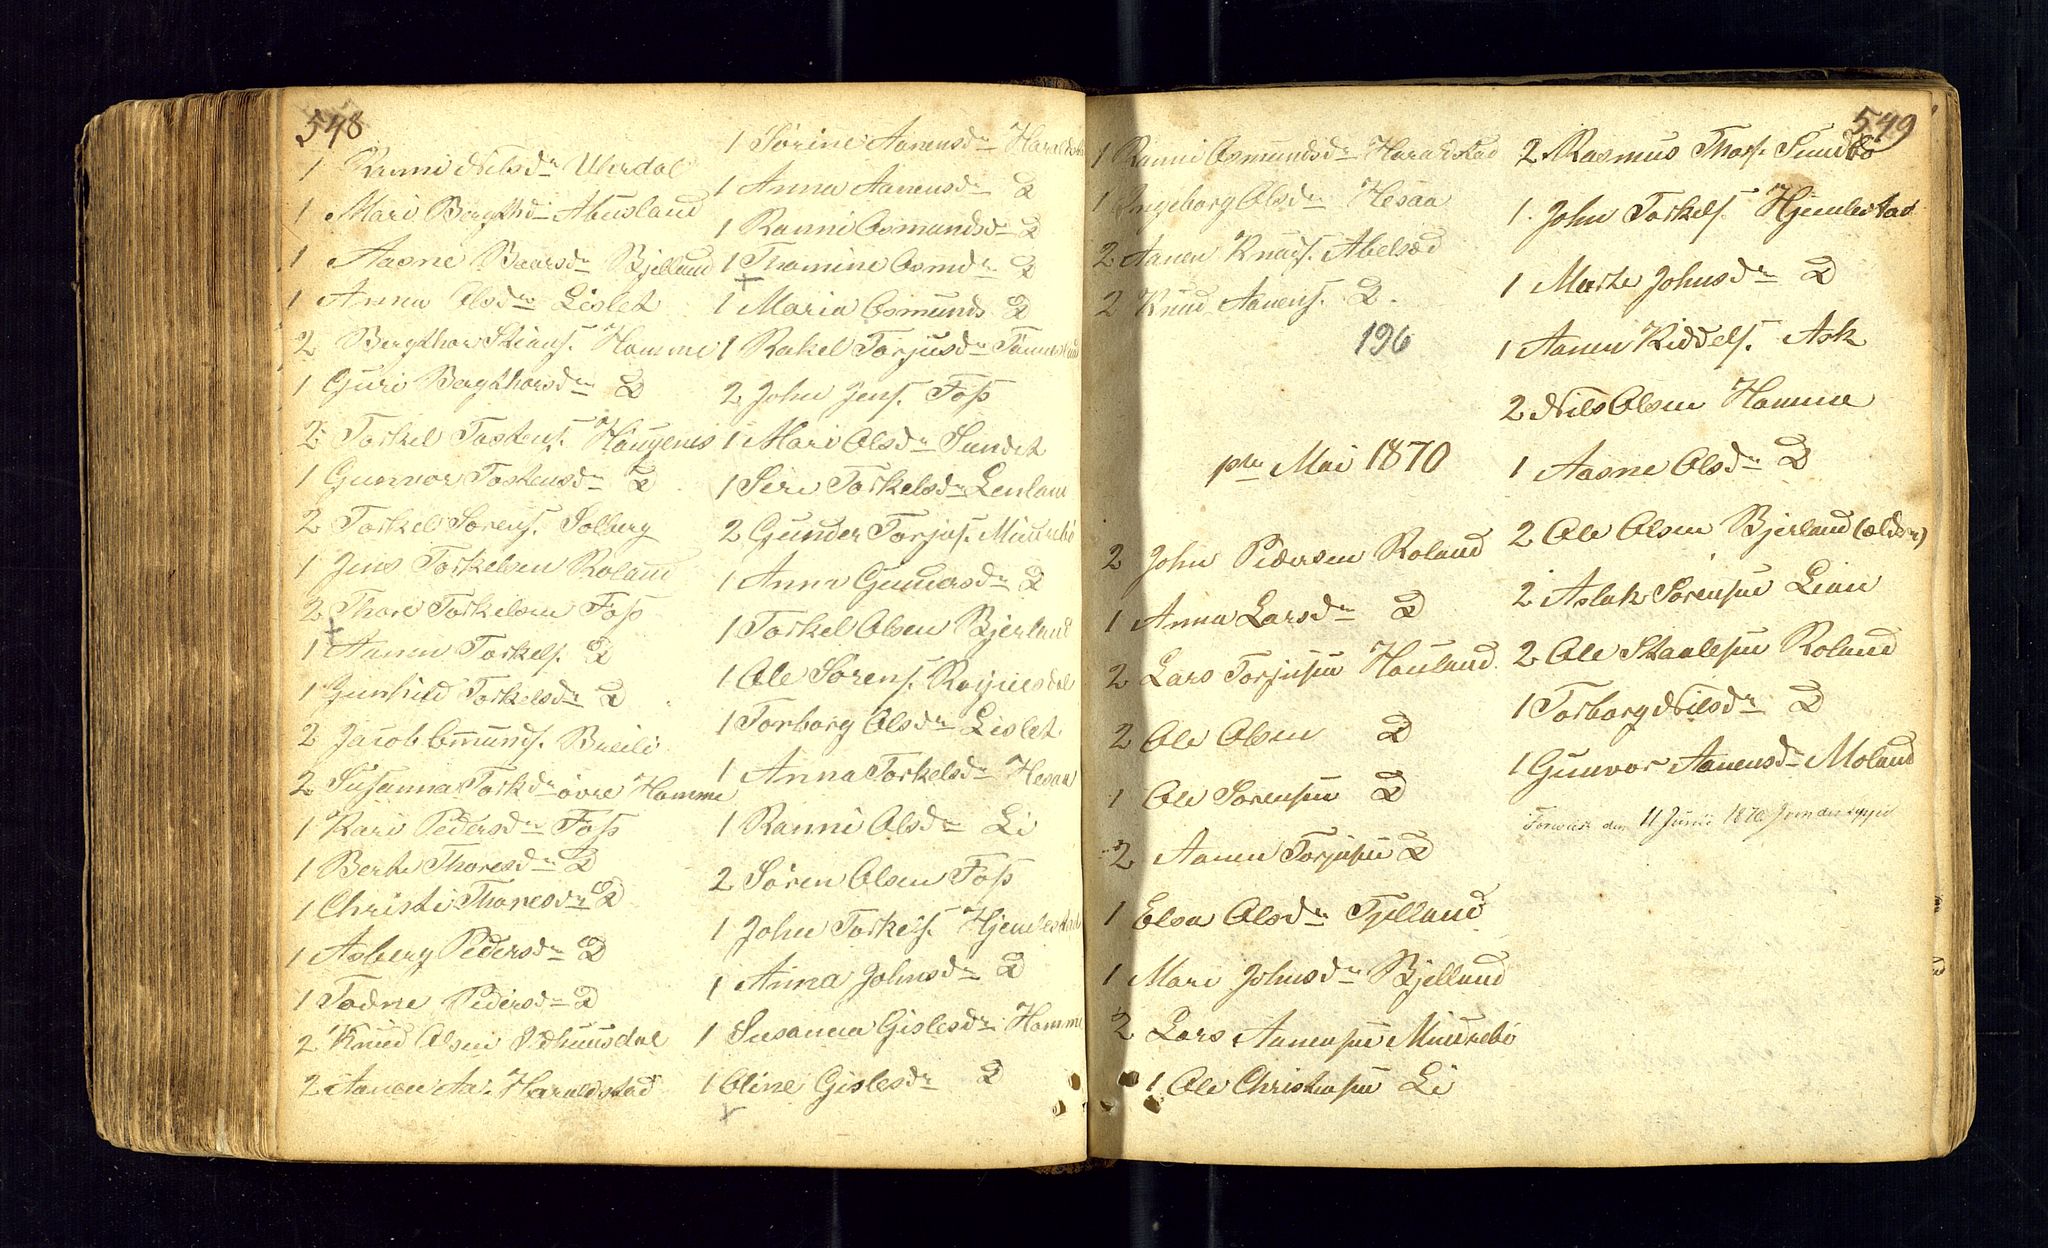 548
1 Ranni Nilsdr Uhrdal
1 Mari Bergthdr Abusland
1 Aasne Baarsdr Bjelland
1 Anna Olsdr Lislet
2 Bergthor Stians. Homme
1 Guri Bergthorsdr D
2 Torkel Tostens. Haugenes
1 Gunvor Tostensdr D
2 Torkel Sørens. Solberg
1 Jens Torkelsen Roland
2 Thore Torkelsen Foss
1 Aanen Torkels. D
1 Gunhild Torkelsdr D
2 Jacob Omunds. Breili
2 Susanna Torkdr øvre Homme
1 Kari Pedersdr Foss
1 Berte Thoresdr D
1 Christi Thoresdr D
1 Asberg Pedersdr D
1 Todne Pedersdr D
2 Knud Olsen
2 Aanen Aa. Haraldstad
1 Sørine Aanensdr Haraldsta
1 Anna Aanensdr D
1 Ranni Osmundsdr D
1 Thomine Osmdr D
1 Maria Osmunds D
1 Rakel Torjusdr
2 John Jens. Foss
1 Mari Olsdr Sundet
1 Siri Torkelsdr Lenlan
2 Gunder Torjus. Muurebø
1 Anna Gundersdr D
1 Torkel Olsen Bjerland
1 Ole Sørens. Røynesdal
1 Torborg Olsdr Lislet
1 Anna Torkelsdr Hesaa
1 Ranni Olsdr Li
2 Søren Olsen Foss
1 John Torkels. Hjemlestad
1 Anna Johnsdr D
1 Susanna Gislesdr Homme
1 Oline Gislesdr D
549
1 Ranni Osmundsdr Haraldstad
1 Ingeborg Olsdr Hesaa
2 Aanen Knuds. Abelsæd
2 Knud Aanens. D.
196
pro Mai 1870
2 John Pedersen Roland
1 Anna Larsdr D
2 Lars Torjusen Houland
2 Ole Olsen D
1 Ole Sørensen D
2 Aanen Torjusen D
1 Elsa Olsdr Fjelland
1 Mari Johnsdr Bjelland
2 Lars Aanensen Muurebø
1 Ole Christensen Li
2 Rasmus Thors. Sundbø
1 John Torkels. Hjemlestad
1 Marte Johnsdr D
1 Aanen Kiddels. Ask
2 Nils Olsen Homme
1 Aasne Olsdr D
2 Ole Olsen Bjerland (ældre)
2 Aslak Sørensen Lian
2 Ole Staalesen Roland
1 Torborg Nilsdr D
1 Gunvor Aanensdr Moland
den 11 Juni 1870